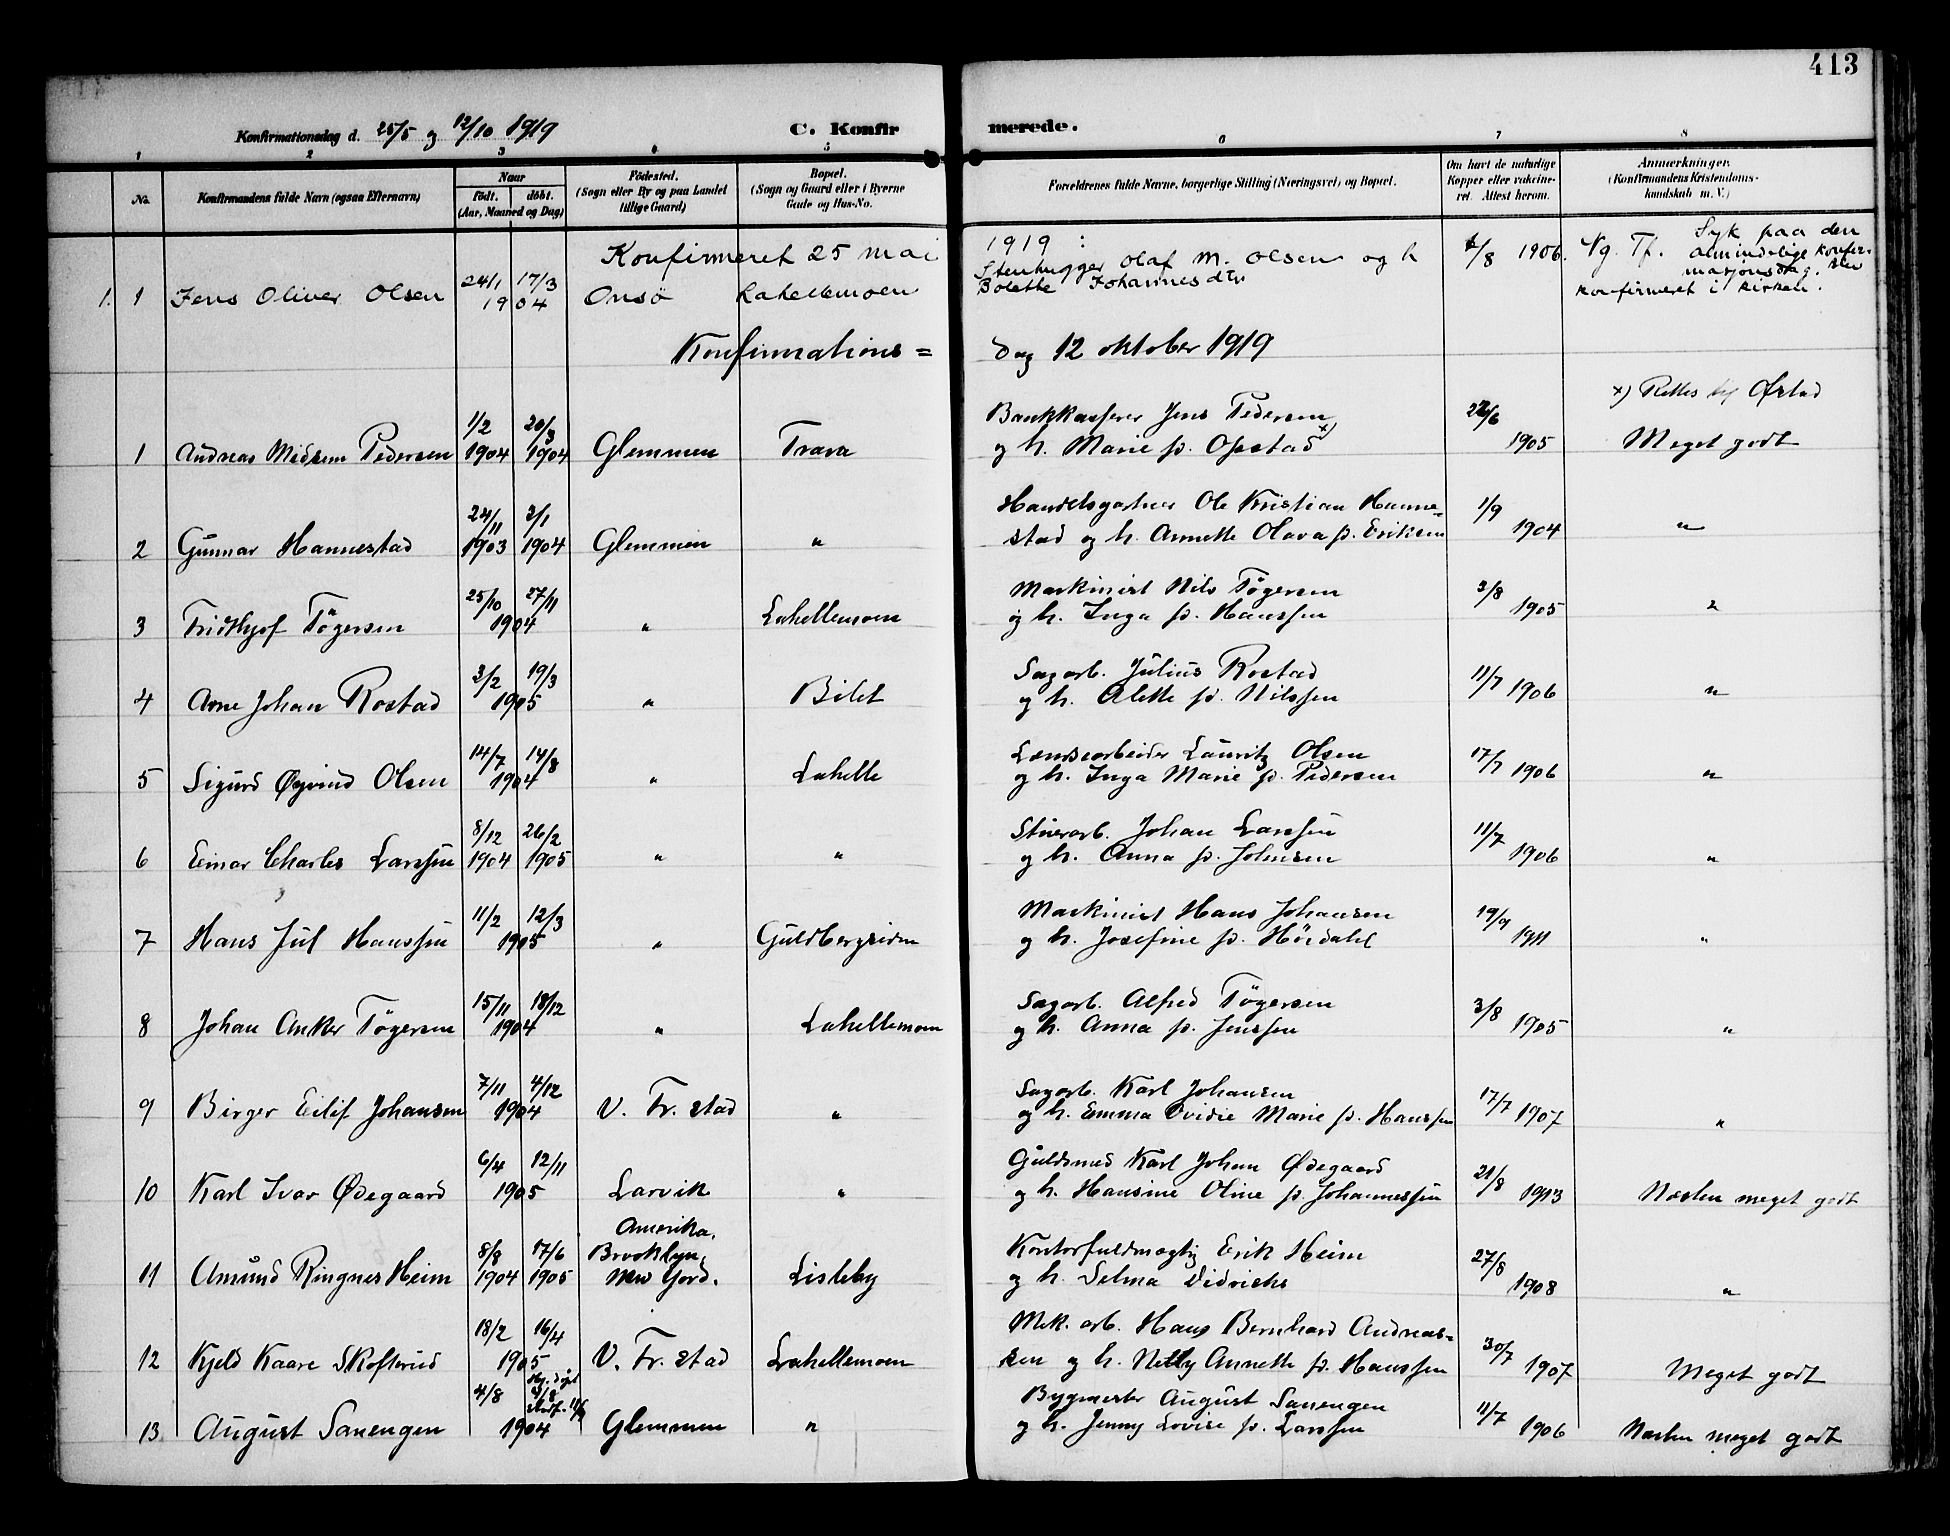 413
Konfirmationsdag d. 25/5 og 12/10 1919 C. Konfirmerede.
1 2 3 4 5 6 7 8
No. Konfirmandens fulde Navn (ogsaa Efternavn) Naar Født. døbt. (Aar, Maaned og Dag) Fødested. (Sogn eller By og paa Landet tillige Gaard) Bopæl. (Sogn og Gaard eller i Byerne Gade og Hus-No. Forældrenes fulde Navne, borgerlige Stilling (Næringsvei) og Bopæl. Om havt de naturlige Kopper eller vaccineret. Attest herom. Anmærkninger. (Konfirmandens Kristendomskundskab m. V.)
Konfirmeret 25 mai 1919:
1. 1 Jens Oliver Olsen 24/1 17/3 1904 Onsö Lahellemoen Stenhugger Olaf M. Olsen og h Bolette Johannesdtr 6/8 1906. Ng. Tf. Syk paa den almindelige konfirmasjonsdag. Blev konfirmeret i kirken.
Konfirmations= dag 12 oktober 1919
x) Rettes til Ørstad
1 Andreas Pedersen 1/2 1904 20/3 1904 Glemmen Trara Bankkasserer Jens Pedersen og h. Marie f. Opstad x) 22/6 1905 Meget godt
2 Gunnar Hannestad 24/11 1903 3/1 1904 Glemmen " Handelsgartner Ole Kristian Hannestad og h. Annette Olava f. Eriksen 1/9 1904 "
3 Fridthjof Tögersen 25/10 27/11 1904 " Lahellemoen Maskinist Nils Tögersen og h. Inga f. Hanssen 3/8 1905 "
4 Arne Johan Rostad 3/2 19/3 1905 " Bilet Sagarb. Julius Rostad og h. Alette f. Nilssen 11/7 1906 "
5 Sigurd Øyvind Olsen 14/7 14/8 1904 " Lahelle Lænsearbeider Lauritz Olsen og h. Inga Marie f. Pedersen 17/7 1906 "
6 Einar Charles Larssen 8/12 1904 26/2 1905 " " Stuerarb. Johan Larssen og h. Anna f. Johnsen 11/7 1906 "
7 Hans Jul Hanssen 11/2 12/3 1905 " Guldbergsiden Maskinist Hans Johansen og h. Josefine f. Hördahl 19/9 1911 "
8 Johan Anker Tögersen 15/11 18/12 1904 " Lahellemoen Sagarb. Alfred Tögersen og h. Anna f. Jenssen 3/8 1905 "
9 Birger Eilif Johansen 7/11 4/12 1904 V. Fr.stad " Sagarb. Karl Johansen og h. Emma Ovidie Marie f. Hanssen 17/7 1907 "
10 Karl Ivar Ødegaard 6/4 12/11 1905 Larvik " Guldsmed Karl Johan Ødegaard og h. Hansine Oline f. Johannessen 21/8 1913 Næsten meget godt
11 Amund Ringnes Heim 8/9 1904 17/6 1905 Amerika, Brooklyn, New Yord. Lisleby Kontorfuldmægtig Erik Heim og h. Selma Didrichs 27/8 1908 "
12 Kjeld Kaare Skofterud 18/2 16/4 1905 V. Fr.stad Lahellemoen Mek. arb. Hans Bernhard Andreassen og h. Nelly Annette f. Hanssen 30/7 1907 Meget godt
13 August Sanengen 4/8 1904 Glemmen " Bygmester August Sanengen og h. Jenny Lovise f. Larssen 11/7 1906 Næsten meget godt